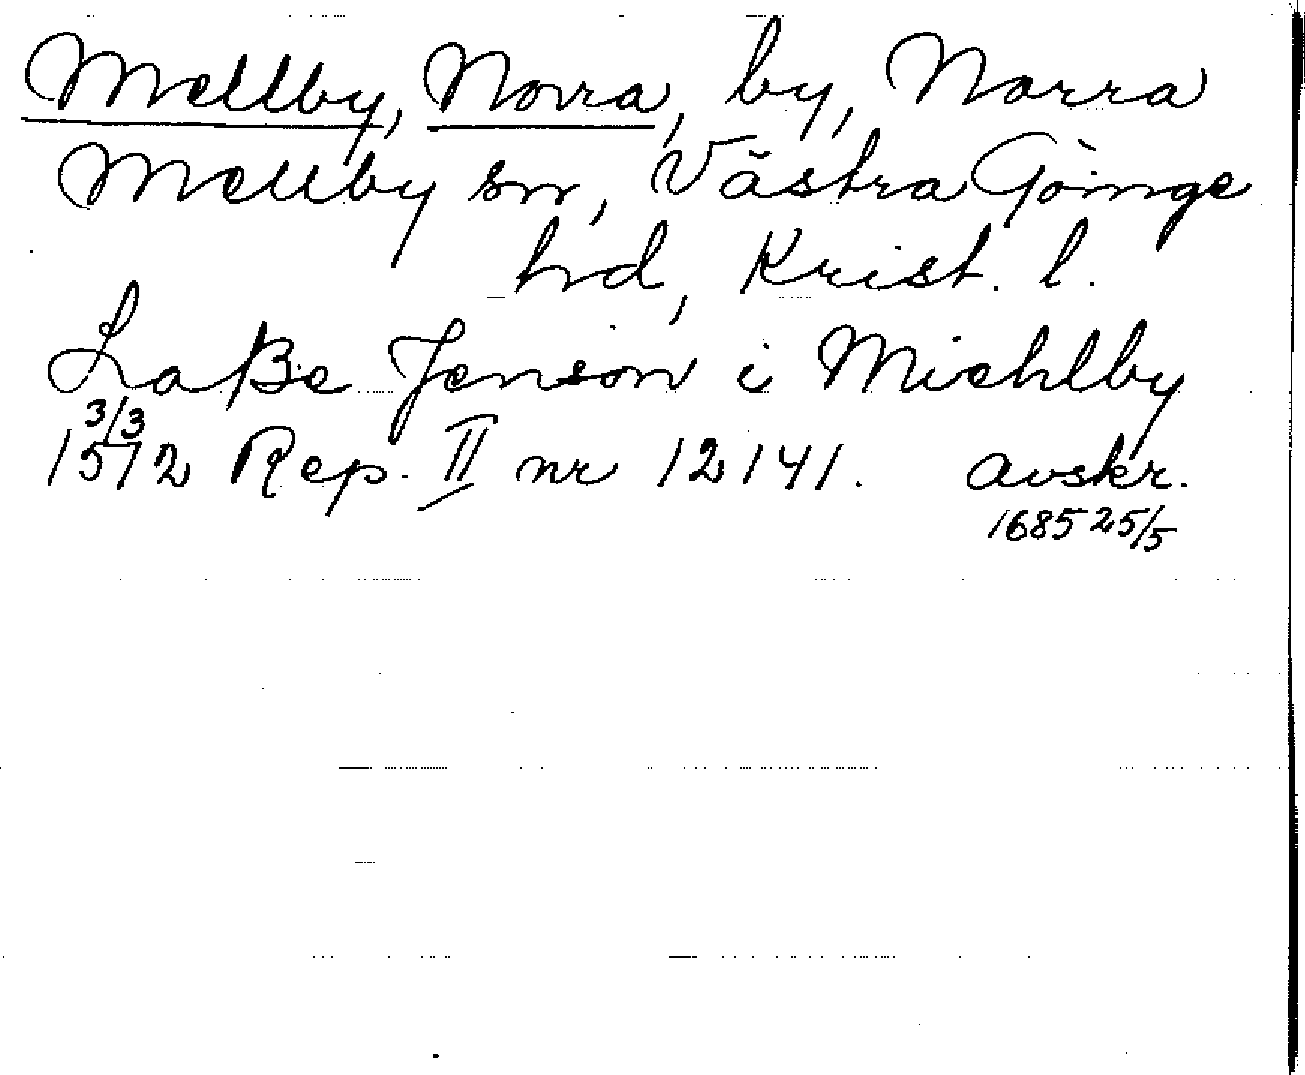 Mellby, Norra, by, Norra
Mellby sn, Västra Göinge
hd, Krist. l.
Laße Jenson i Miehlby
3/3
1512 Rep. II nr 12141. avskr.
1685 25/5